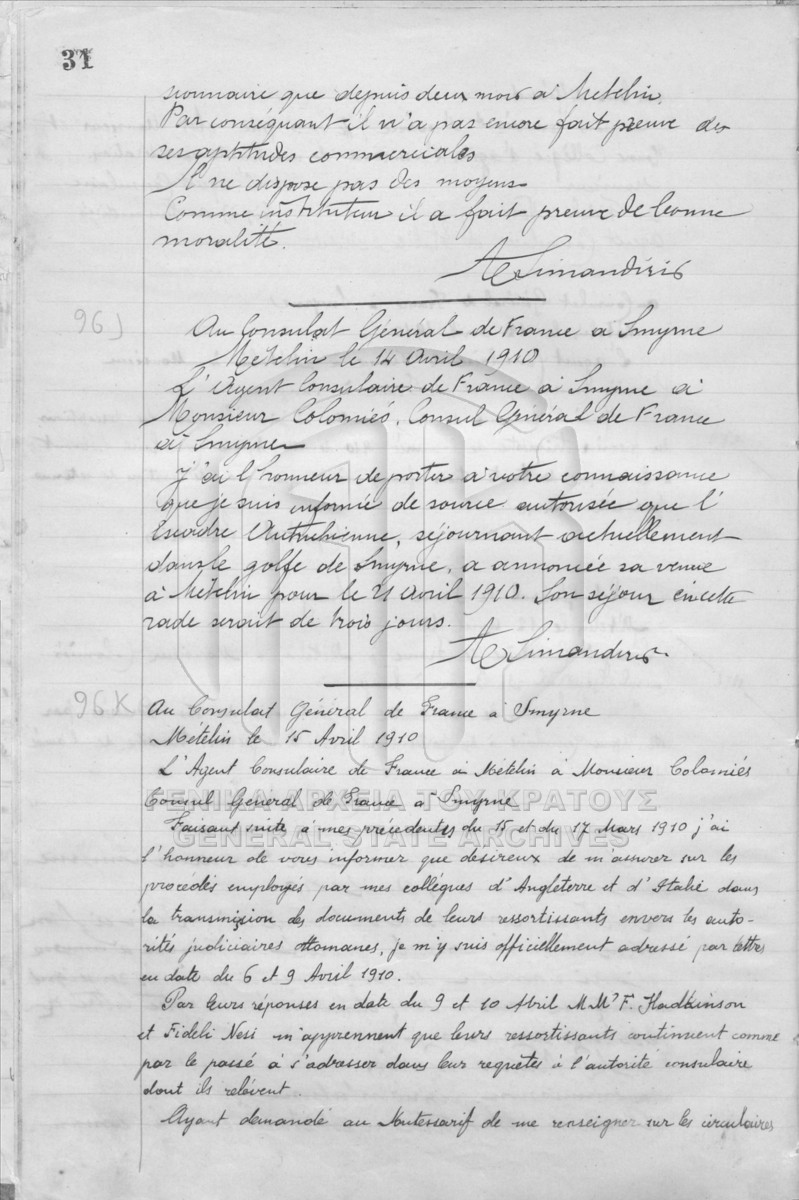 31
sionnaire que depuis deux mois à Metelin.
Par conséquant il n'a pas encore fait preuve des
ses aptitudes commericales
Il ne dispose pas des moyens
Comme instituteur il a fait preuve de bonne
moralité.
Simandiris
96 J
Au Consulat Général de France a Smyrne
Métélin le 14 Avril 1910
L'Agent Consulaire de France à Smyrne à
Monsieur Colomiés, Consul Général de France
à Smyrne
J'ai l'honneur de porter à votre connaissance
que je suis informé de source autorisée que l'
Escadre Autrichienne, séjournant actuellement
dans le golfe de Smyrne, a annoncée sa venue
à Metelin pour le 21 Avril 1910. Son séjour en cette
rade serait de trois jours.
Simandiris
96 K
Au Consulat Général de France à Smyrne
Métélin le 15 Avril 1910
L'Agent Consulaire de France à Mételin à Monsieur Colomiés
Consul General de France à Smyrne
ΓΕΝΙΚΑ ΑΡΧΕΙΑ ΤΟΥ ΚΡΑΤΟΥΣ
Faisant suite à mes precedentes du 15 et du 17 Mars 1910 j'ai
GENERAL STATE ARCHIVES
l'honneur de vous informer que desireux de m'assurer sur les
procédés employés par mes collègues d'Angleterre et d'Italie dans
la transmission des documents de leurs ressortissants envers les auto-
rités judiciaires ottomanes, je m'y suis officiellement adressé par lettres
en date du 6 et 9 Avril 1910.
Par leurs réponses en date du 9 et 10 Abril M M? F. Hadkinson
et Fideli Nesi m'apprennent que leurs ressortissants continuent comme
par le passé à s'adresser dans leur requêtes à l'autorité consulaire
dont ils relèvent.
Ayant demandé au Moutessarif de me renseigner sur les circulaires